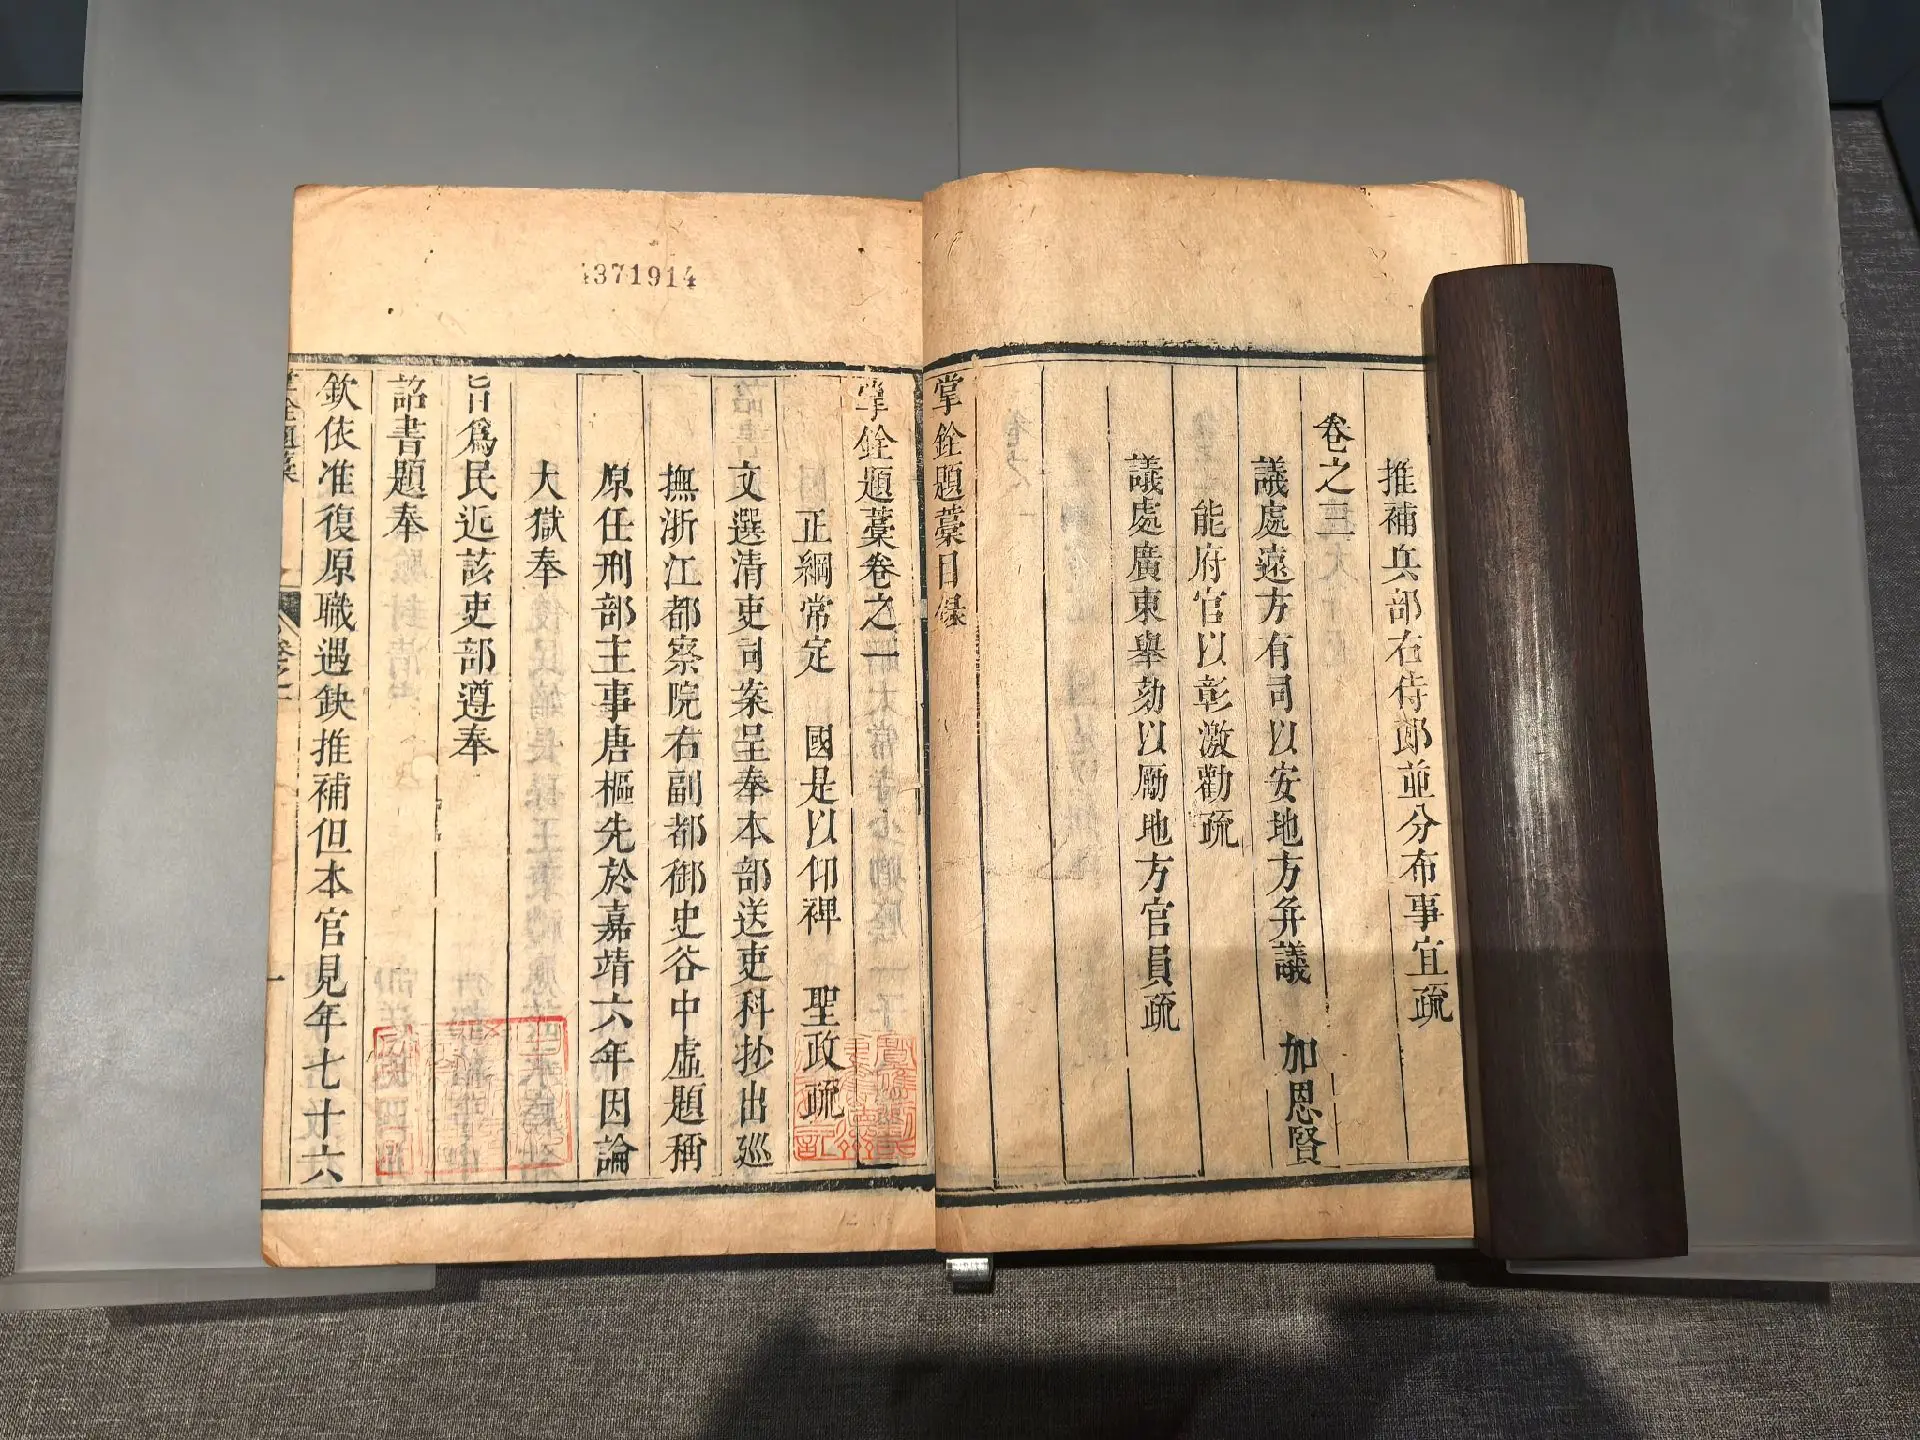 推補兵部右侍郎並分布事宜疏
卷之三
議處遠方有司以安地方弁議 加恩賢
能府官以彰激勸疏
議處廣東舉劾以勵地方官員疏
掌銓題藁目錄
4371914
掌銓題藁卷之一
正綱常定 國是以仰裨 聖政疏
文選清吏司案呈奉本部送吏科抄出巡
撫浙江都察院右副都御史谷中虛題稱
原任刑部主事唐樞先於嘉靖六年因論
大獄奉
旨爲民近該吏部遵奉
詔書題奉
欽依准復原職遇缺推補但本官見年七十六
卷之一
一